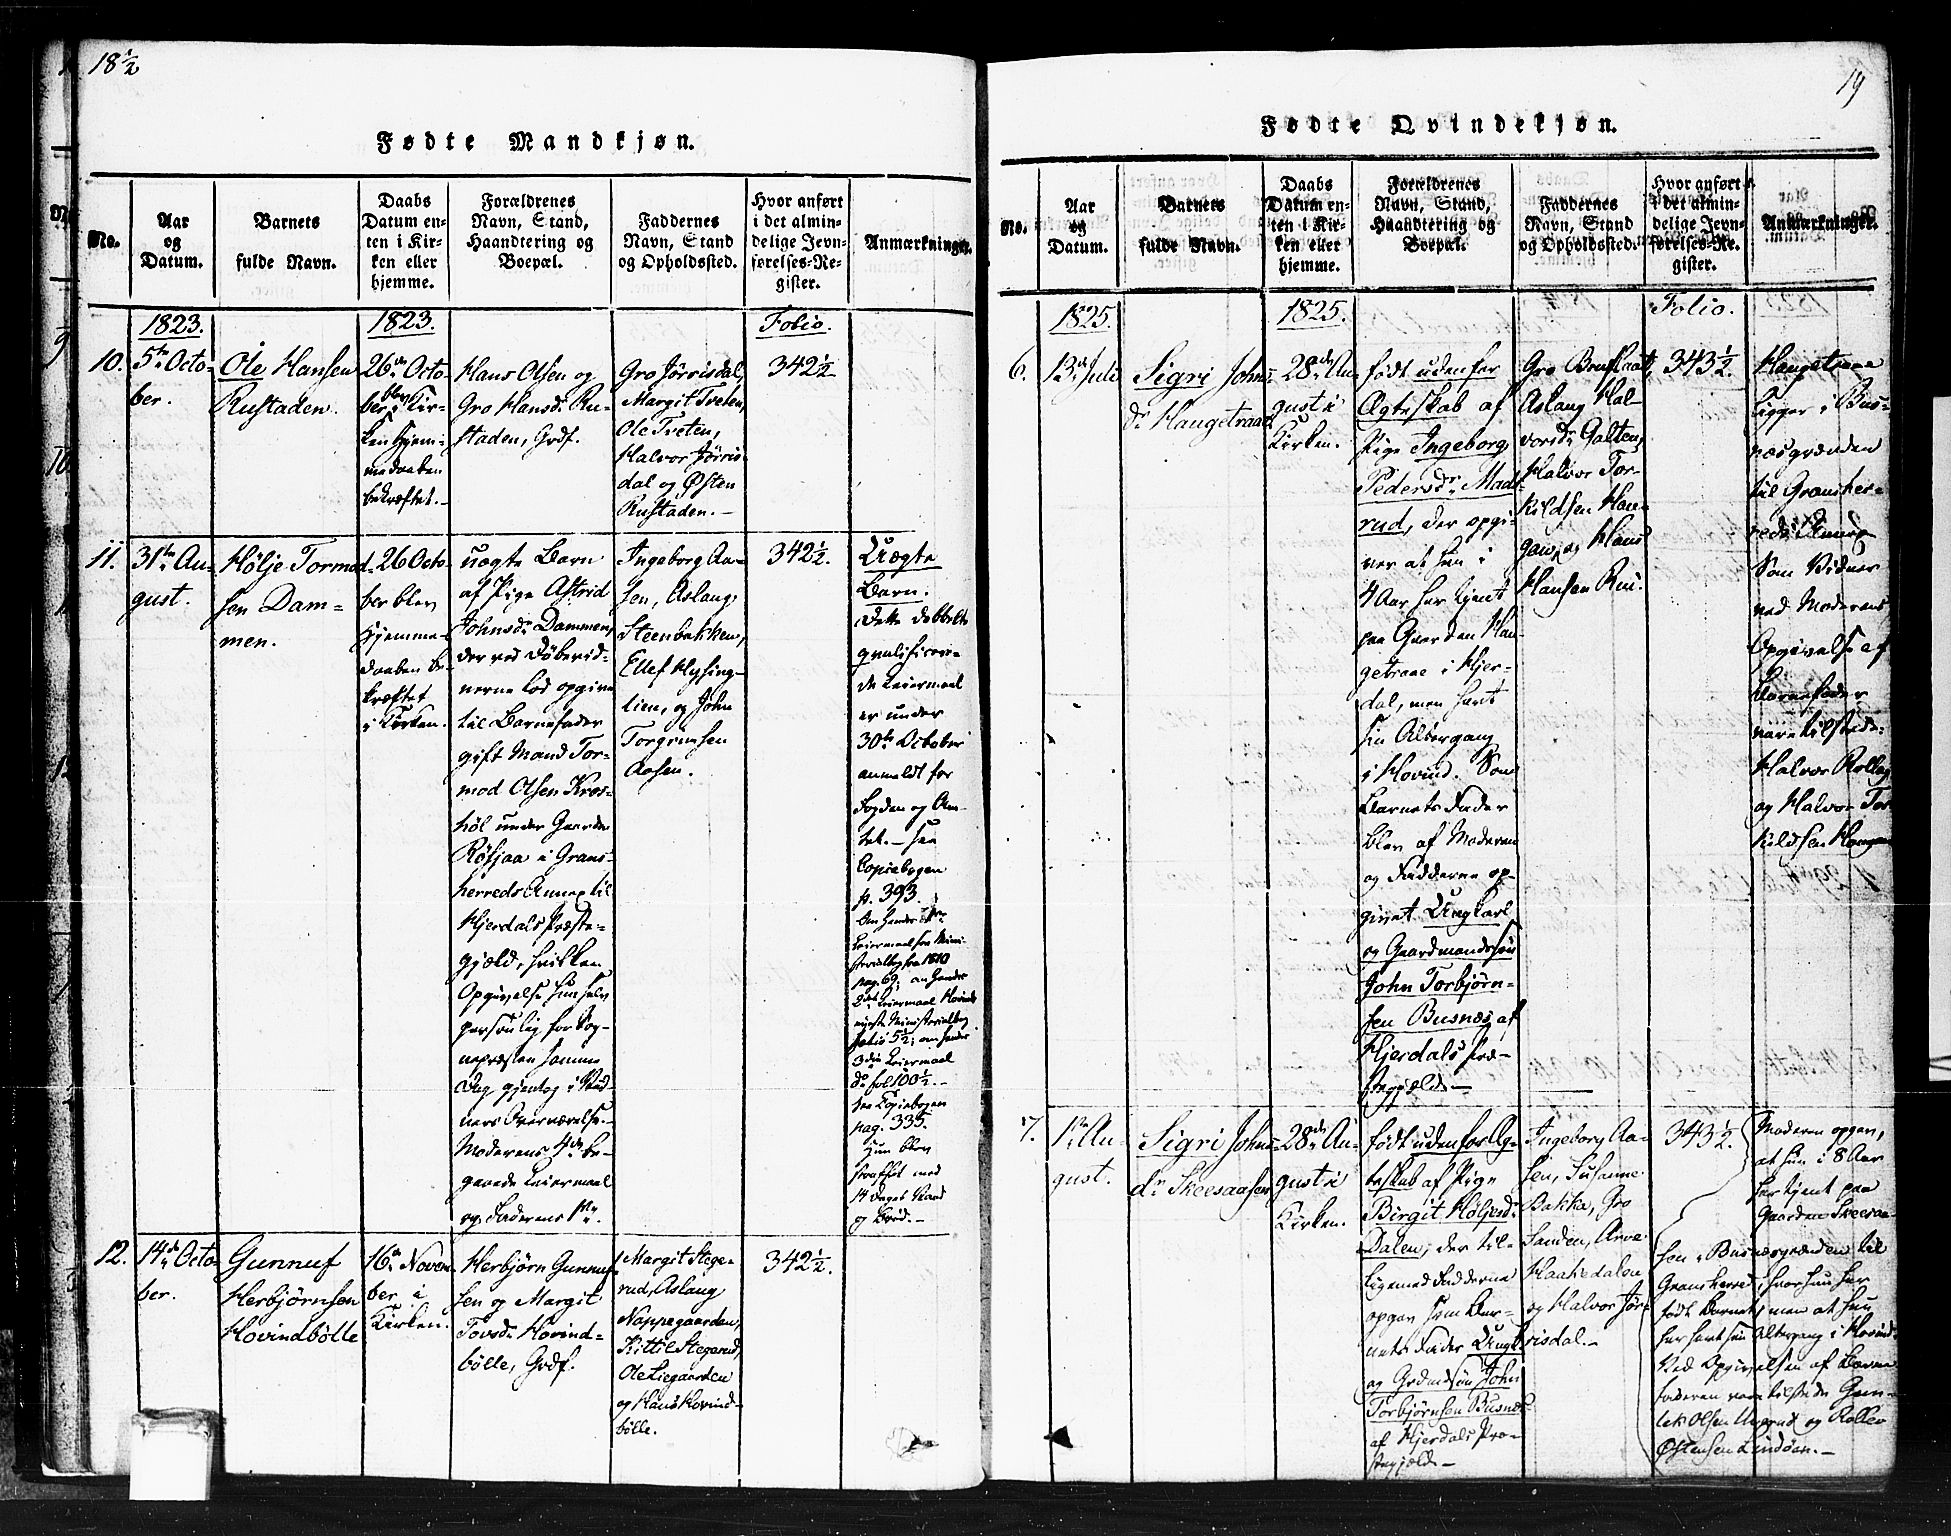 18 1/2
Fødte Mandkjøn.
No.
Aar
og
Datum.
Barnets
fulde Navn.
Daabs
Datum en-
ten i Kir-
ken eller
hjemme.
Forældrenes
Navn, Stand,
Haandtering og
Boepæl.
Faddernes
Navn, Stand
og Opholdssted.
Hvor anført
i det almin-
delige Jevn-
førelses-Re-
gister.
Anmærkninger.
1823.
1823.
Folio.
10.
5te Octo-
ber.
Ole Hansen
Rustaden.
26de Octo-
ber blev
i Kir-
ken Hjem-
medaaben
bekræftet.-
Hans Olsen og
Gro Hansdr Ru-
staden, Grdf.
Gro Jørrisdal,
Margit Tveten,
Ole Tveten,
Halvor Jørris-
dal og Østen
Rustaden.-
342 1/2
11.
31te Au-
gust.
Hølje Tormod-
sen Dam-
men.
26 Octo-
ber blev
Hjemme-
daaben be-
kræftet
i Kirken.
uægte Barn
af Pige Astrid
Johnsdr Dammen,
der ved Døbevid-
nerne lod opgive
til Barnefader
gift Mand Tor-
mod Olsen Kros-
høl under Gaarden
Røfsjaa i Grans-
herreds Annex til
Hjerdals Præste-
gjæld, hvilken
Opgivelse hun selv
personlig for Sog-
nepræsten samme
Dag gjentog i Vid-
ners Overværelse.-
Moderens 4de be-
gaaede Leiermaal
og Faderens 1te.
Ingeborg Aa-
sen, Aslaug
Steenbakken,
Ellef Hysing-
lien, og John
Torgrimsen
Aasen.
342 1/2.
Uægte
Barn.
Dette dobbelt
qvalificere-
de Leiermaal
er under
30te October
anmeldt for
Fogden og Am-
tet.- see
Copiebogen
p. 393.
Om hendes 1te
Leiermaal see Mini-
sterialbog fra 1810
pag. 69; om hendes
2det Leiermaal Hovinds
nyeste Ministerialbog
folio 5 1/2; om hendes
3die Leiermaal
do fol 100 1/2.-
see Copiebogen
pag. 335.
Hun blev
straffet med
14 Dages Vand
og Brød.-
12.
14de Octo-
ber.
Gunnuf
Herbjørnsen
Hovindbølle
16de Novem-
ber i
Kirken.
Herbjørn Gunnuf-
sen og Margit
Tovsdr Hovind-
bølle, Grdf.
Margit Stege-
rud, Aslaug
Noppegaarden,
Kittil Stegerud,
Ole Liegaarden
og Hans Hovind-
bølle.
342 1/2.
19
Fødte Qvindekjøn.
No.
Aar
og
Datum.
Barnets
fulde Navn.
Daabs
Datum en-
ten i Kir-
ken eller
hjemme.
Forældrenes
Navn, Stand,
Haandtering og
Boepæl.
Faddernes
Navn, Stand
og Opholdssted.
Hvor anført
i det almin-
delige Jevn-
førelses-Re-
gister.
Anmærkninger.
1825.
1825.
Folio.
6.
13de Juli
Sigri Johns-
dr Haugetraae
28de Au-
gust i
Kirken.
født udenfor
Ægteskab af
Pige Ingeborg
Pedersdr Mad-
rud, der opgi-
ver at hun i
4 Aar har tjent
paa Gaarden Hau-
getraae i Hjer-
dal, men havt
sin Altergang
i Hovind. Som
Barnets Fader
blev af Moderen
og Fadderne op-
givet Ungkarl
og Gaardmandssøn
John Torbjørn-
sen Busnæs af
Hjerdals Præ-
stegjæld.-
Gro
Aslaug Hal-
vorsdr Galten,
Halvor Tor-
kildsen Hau-
gen, og Hans
Hansen Rui.
343 1/2.
Haugetraae
ligger i Bus-
næsgrænden
til Gransher-
reds Annex
Som Vidner
ved Moderens
Opgivelse af
Barnefader
vare tilstede:
Halvor
og Halvor Tor-
kildsen Haugen
7.
1te Au-
gust.
Sigri Johns-
dr Skeesaasen
28de Au-
gust i
Kirken.
født udenfor Æg-
teskab af Pige
Birgit Høljesdr
Dalen, der til-
ligemed Fadderne
opgav som Bar-
nets Fader Ungk.
og Grdmdsøn John
Torbjørnsen Busnæs
af Hjerdals Præ-
stegjæld.-
Ingeborg Aa-
sen, Susanne
Bakka, Gro
Sanden, Arve
Haatvedalen
og Halvor Jør-
risdal.-
343 1/2.
Moderen opgav,
at hun i 8 Aar
har tjent paa
Gaarden Skeesaa-
sen i Busnæsgrænden til
Gransherred, hvor hun har
født Barnet, men at hun
har havt sin Altergang i Hovind.
Ved Opgivelsen af Barne-
faderen vare tilstede Gun-
lek Olsen og Rollev
Østensen Lindaas.-